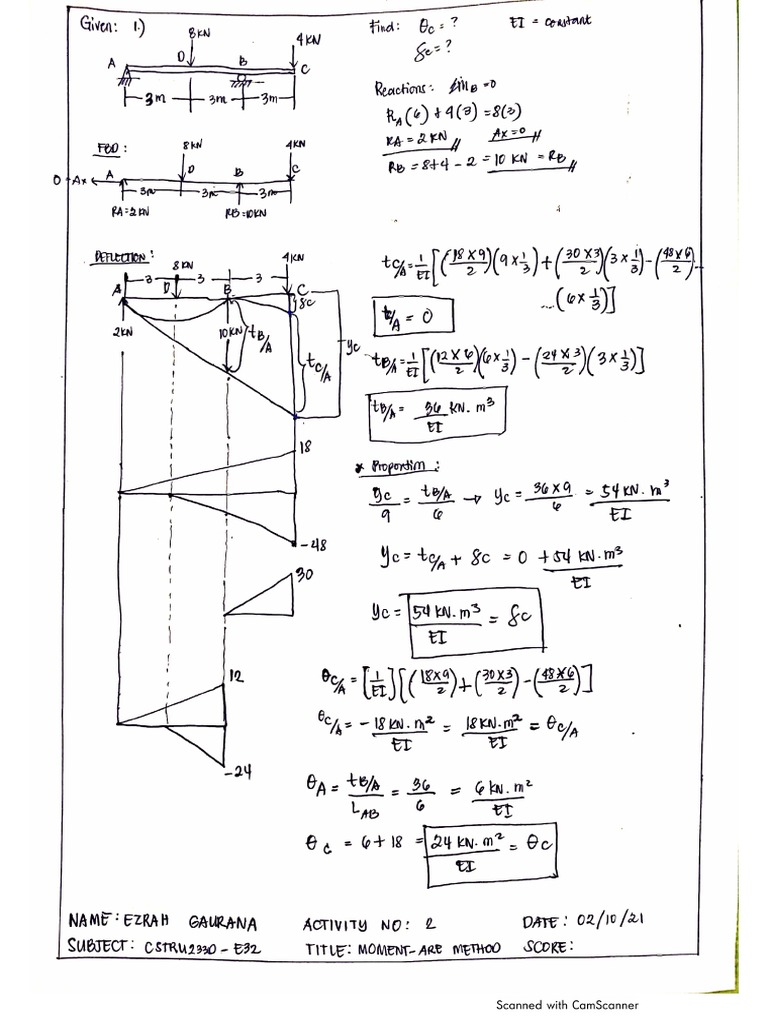 Given: 1.)
Find: θc = ? EI = constant
δc = ?
8KN
4KN
A D B C
3m 3m 3m
Reactions: ΣMB = 0
RA(6) + 4(3) = 8(3)
RA = 2 KN Ax = 0
RB = 8+4-2 = 10 KN = RB
FBD:
8KN 4KN
0 = Ax A D B C
3m 3m 3m
RA = 2KN RB = 10KN
DEFLECTION:
8KN 4KN
3 3 3
A D B C
δc
2KN 10KN tB/A tC/A yc
18
-48
30
12
-24
tC/A = 1/EI [(18×9/2)(9×1/3) + (30×3/2)(3×1/3) - (48×6/2)...
...(6×1/3)]
tC/A = 0
tB/A = 1/EI [(12×6/2)(6×1/3) - (24×3/2)(3×1/3)]
tB/A = 36 KN.m³/EI
* Proportion:
yc/9 = tB/A/6 → yc = 36×9/6 = 54 KN.m³/EI
yc = tC/A + δc = 0 + 54 KN.m³/EI
yc = 54 KN.m³/EI = δc
θC/A = [1/EI][(18×9/2) + (30×3/2) - (48×6/2)]
θC/A = -18 KN.m²/EI = 18 KN.m²/EI = θC/A
θA = tB/A/LAB = 36/6 = 6 KN.m²/EI
θc = 6+18 = 24 KN.m²/EI = θc
NAME: EZRAH GAURANA ACTIVITY NO: 2 DATE: 02/10/21
SUBJECT: CSTRU2330 - E32 TITLE: MOMENT-ARE METHOD SCORE:
Scanned with CamScanner